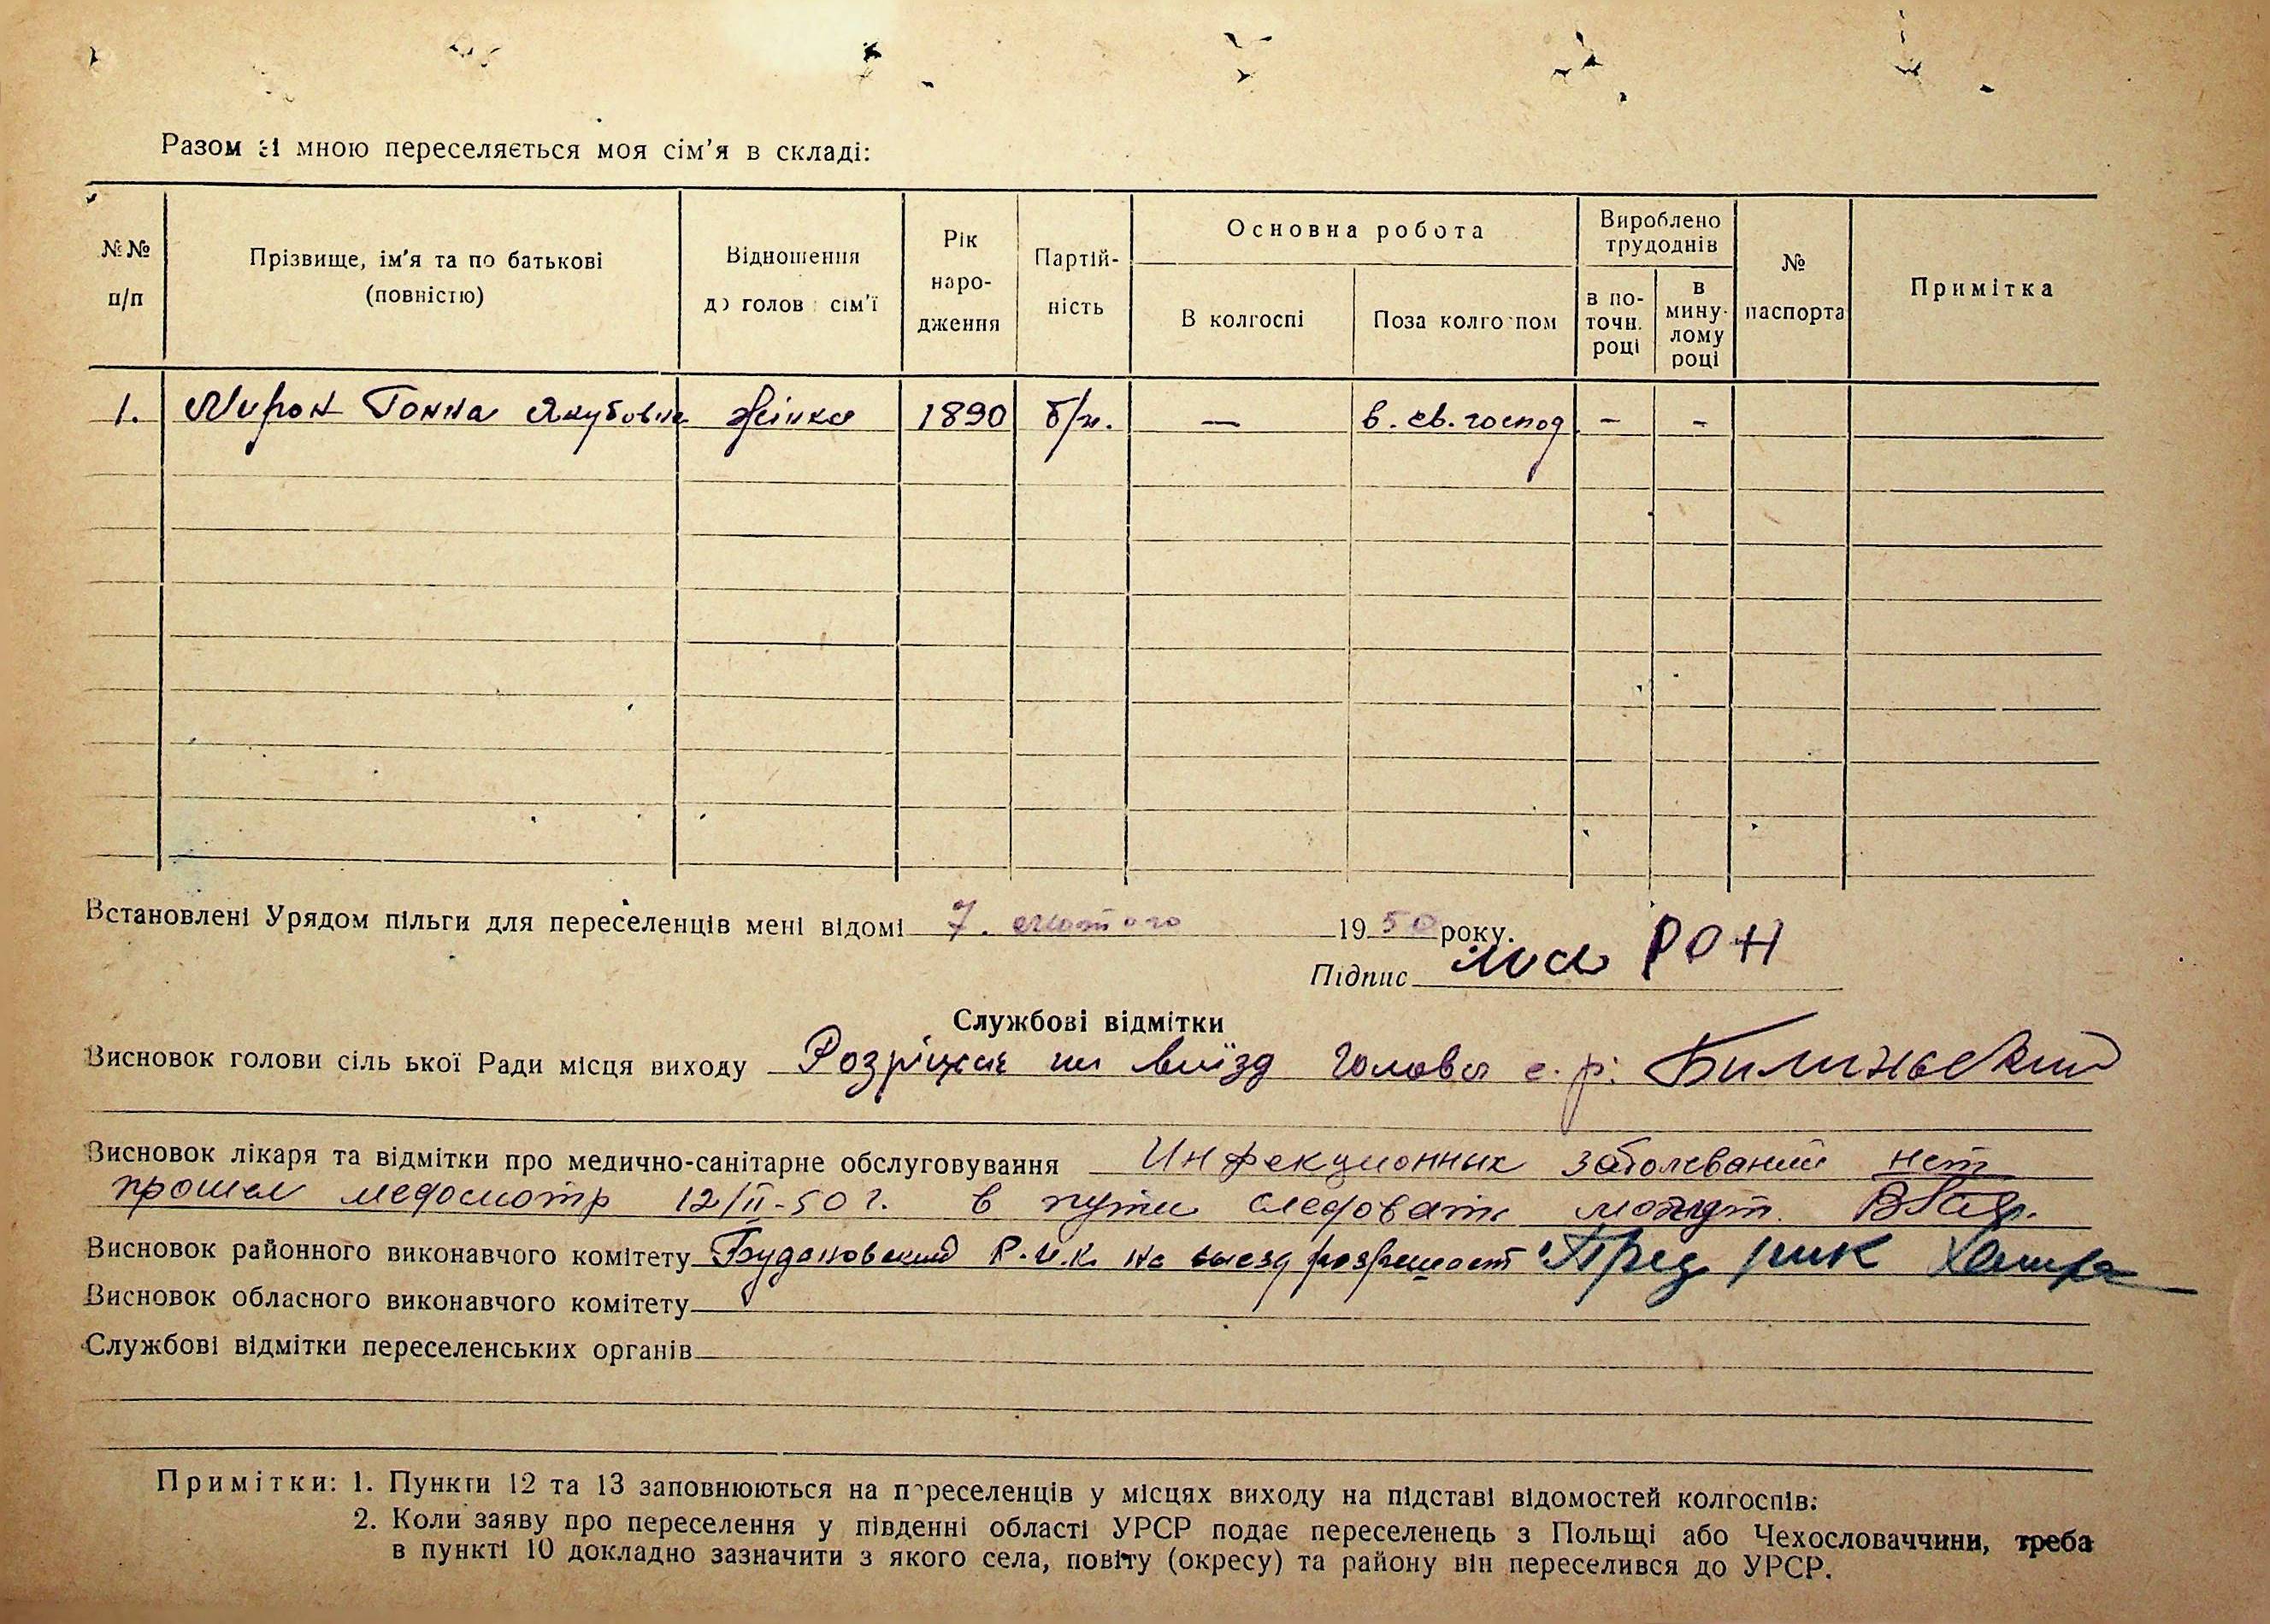 Разом зі мною переселяється моя сім'я в складі:
№№ п/п
Прізвище, ім'я та по батькові (повністю)
Відношення до голов сім'ї
Рік народження
Партійність
Основна робота
В колгоспі
Поза колгоспом
Вироблено трудоднів
в поточн. році
в минулому році
№ паспорта
Примітка
1. Мирон Ганна Якубовна жінка 1890 б/п. — в. св. господ - -
Встановлені Урядом пільги для переселенців мені відомі 7. лютого 1950 року.
Підпис РОН
Службові відмітки
Висновок голови сільської Ради місця виходу Розріжає на виїзд Голова с. р.
Висновок лікаря та відмітки про медично-санітарне обслуговування Инфекционных заболеваний нет
прошел медосмотр 12/II-50 г. в пути следовать могут.
Висновок районного виконавчого комітету Будановский Р.И.К. на выезд розрешает Пред рик
Висновок обласного виконавчого комітету
Службові відмітки переселенських органів
Примітки: 1. Пункти 12 та 13 заповнюються на переселенців у місцях виходу на підставі відомостей колгоспів.
2. Коли заяву про переселення у південні області УРСР подає переселенець з Польщі або Чехословаччини, треба
в пункті 10 докладно зазначити з якого села, повіту (окресу) та району він переселився до УРСР.